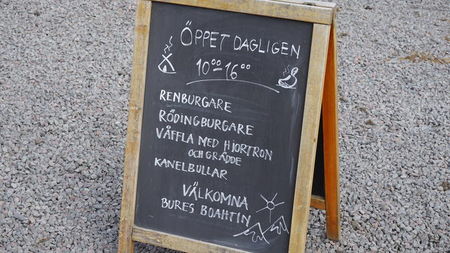 ÖPPET DAGLIGEN
10⁰⁰-16⁰⁰
RENBURGARE
RÖDINGBURGARE
VÅFFLA MED HJORTRON
OCH GRÄDDE
KANELBULLAR
VÄLKOMNA
BURES BOAHTIN